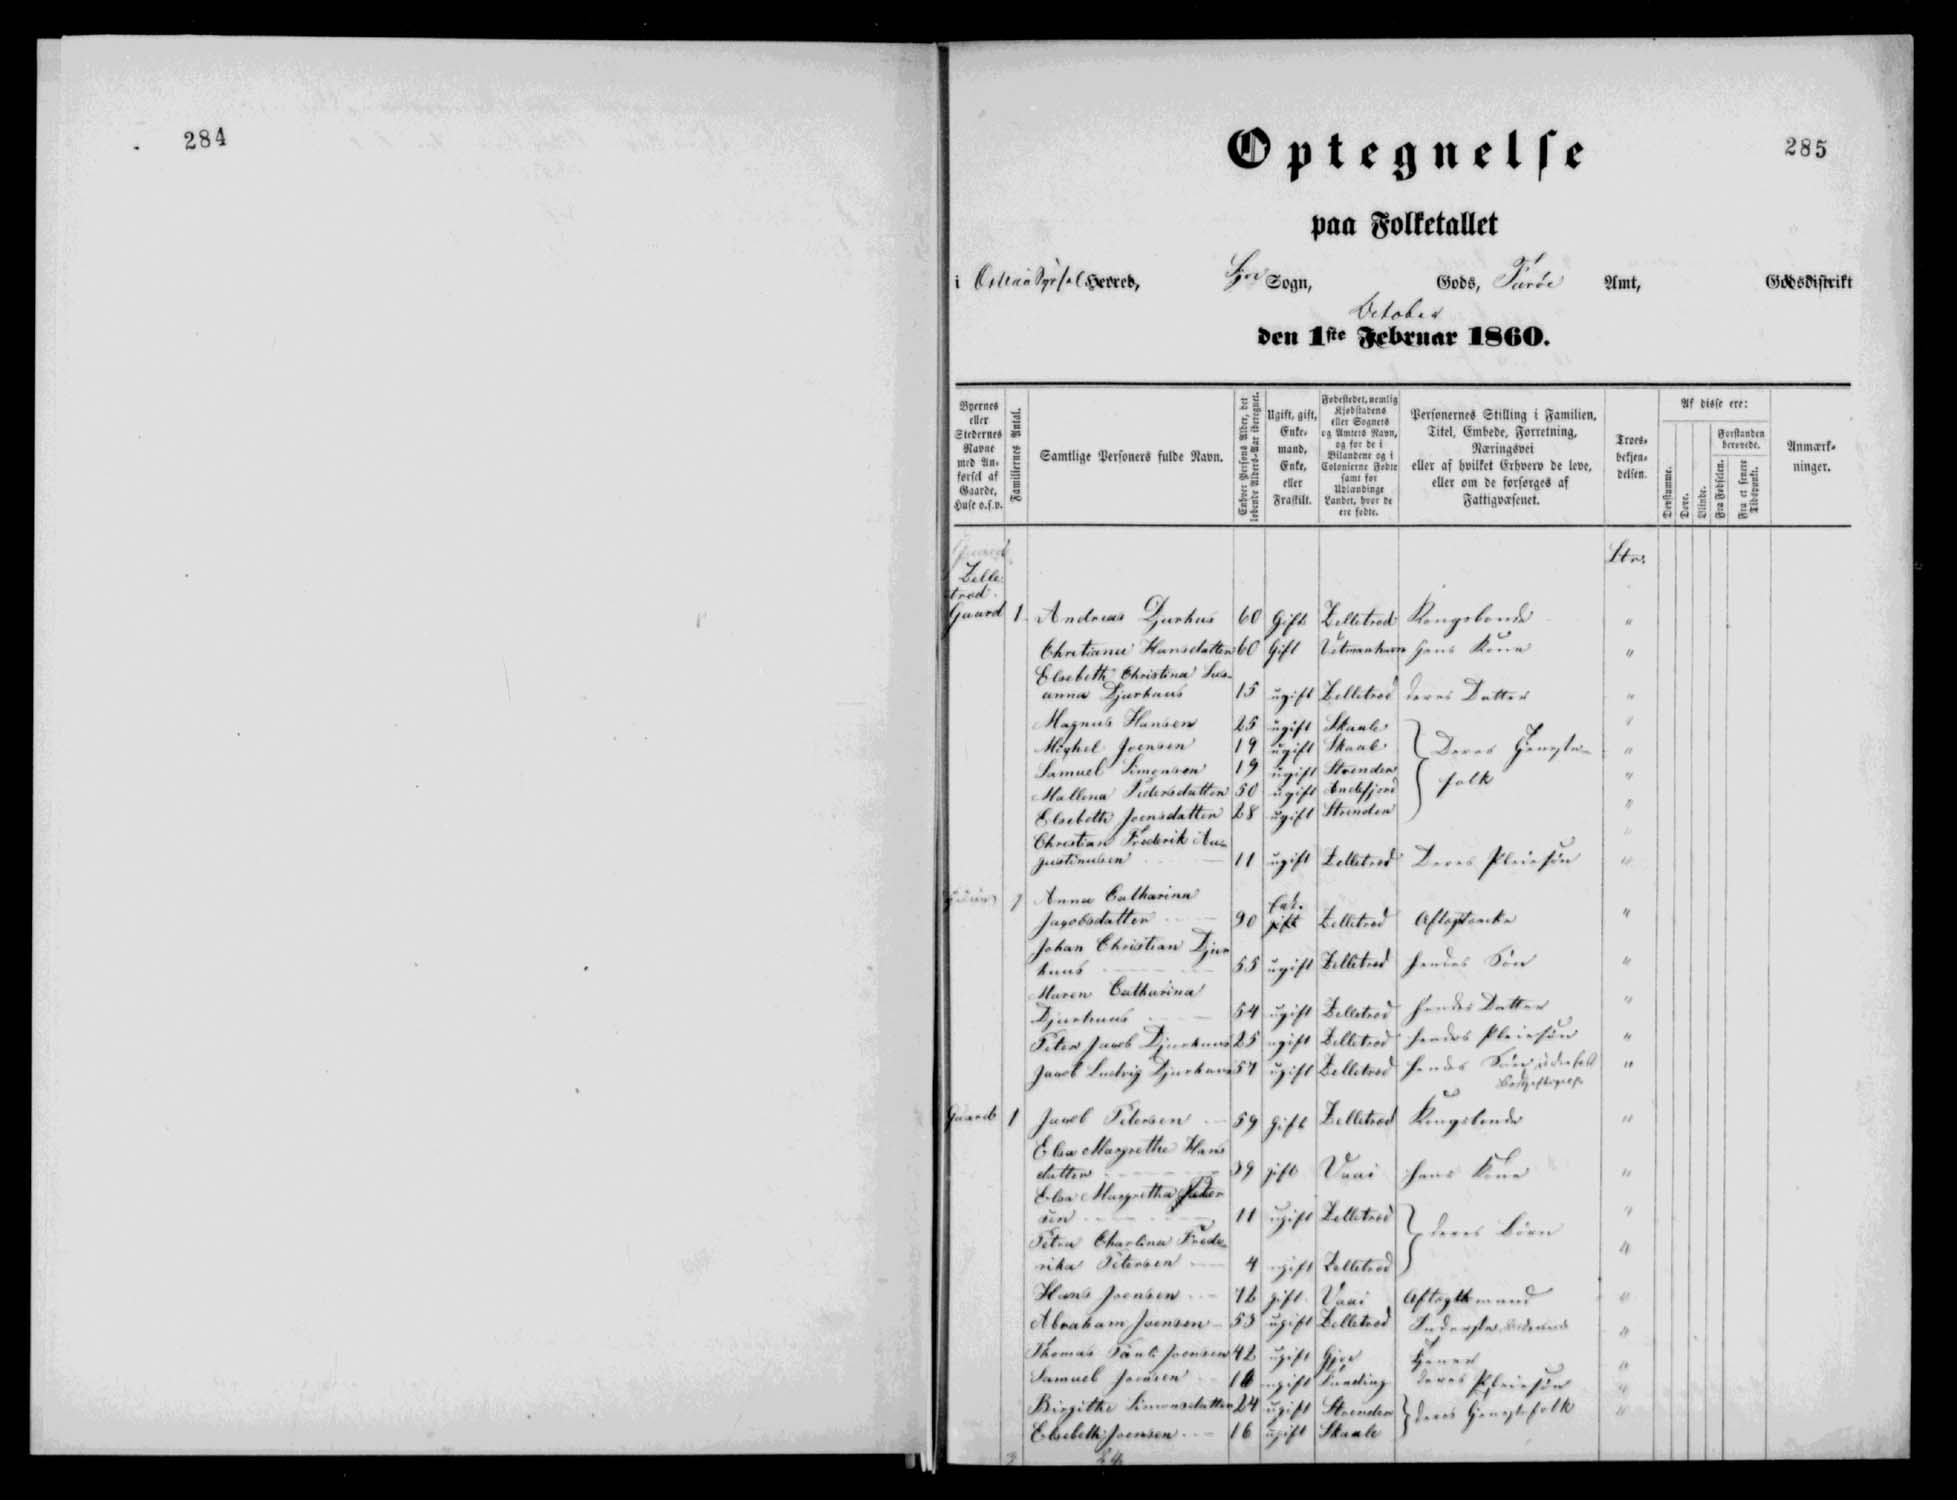 284
285
Optegnelse
paa Folketallet
i Østerö Sysſel Herred, Gjov Sogn, Gods, Færöe Amt, Godsdistrikt
October
den 1ste Februar 1860.
Byernes eller Stedernes Navne med Anførsel af Gaarde, Huse o.s.v.
Familiernes Antal.
Samtlige Personers fulde Navn.
Enhver Persons Alder, det løbende Alders-Aar iberegnet.
Ugift, gift, Enkemand, Enke, eller Fraskilt.
Fødestedet, nemlig Kjøbstadens eller Sognets og Amtets Navn, og for de i Bilandene og i Colonierne Fødte samt for Udlændinge Landet, hvor de ere fødte.
Personernes Stilling i Familien, Titel, Embede, Forretning, Næringsvei eller af hvilket Erhverv de leve, eller om de forsørges af Fattigvæsenet.
Troesbekjendelsen.
Af disse ere:
Døvstumme.
Døve.
Blinde.
Forstanden berøvede.
Fra Fødselen.
Fra et senere Tidspunkt.
Anmærkninger.
Gaard
Zelletrød. Ltr.
Gaard 1 Andreas Djurhus 60 Gift Zelletrød Kongsbonde "
Chretiane Hansdatter 60 Gift Vestmanhavn Hans Kone "
Elsebeth Christina Susanna Djurhuus 15 ugift Zelletrød deres Datter "
Magnus Hansen 25 ugift Skaale "
Michel Joensen 19 ugift Skaale } Deres Tjeneste- "
Samuel Simonsen 19 ugift Strender folk "
Mallena Pedersdatter 50 ugift Andefjord "
Elsebeth Joensdatter 28 ugift Strender "
Christian Frederik Augustinusen 11 ugift Zelletrød Deres Pleiesøn "
1 Anna Catharina Jacobsdatter 90 Enke gift Zelletrød Aftægtsenke "
Johan Christian Djurhuus 55 ugift Zelletrød hendes Søn "
Maren Catharina Djurhuus 54 ugift Zelletrød hendes Datter "
Peter Jacob Djurhuus 25 ugift Zelletrød hendes Pleiesøn "
Jacob Ludvig Djurhuus 57 ugift Zelletrød hendes Søn "
Gaard 1 Jacob Petersen 59 Gift Zelletrød Kongsbonde "
Elsa Margrethe Hansdatter 39 gift Vaai hans Kone "
Elsa Margretha Petersen 11 ugift Zelletrød } deres Børn "
Petra Charlina Frederika Petersen 4 ugift Zelletrød "
Hans Joensen 72 gift Vaai Aftægtsmand "
Abraham Joensen 53 ugift Zelletrød Inderste "
Thomas Pauli Joensen 42 ugift Gjov Tjener "
Samuel Joensen ugift Funding deres Pleiesøn "
Birgithe Simonsdatter 24 ugift Strender } deres Tjenestefolk "
Elsebeth Joensen 16 ugift Skaale
3 24